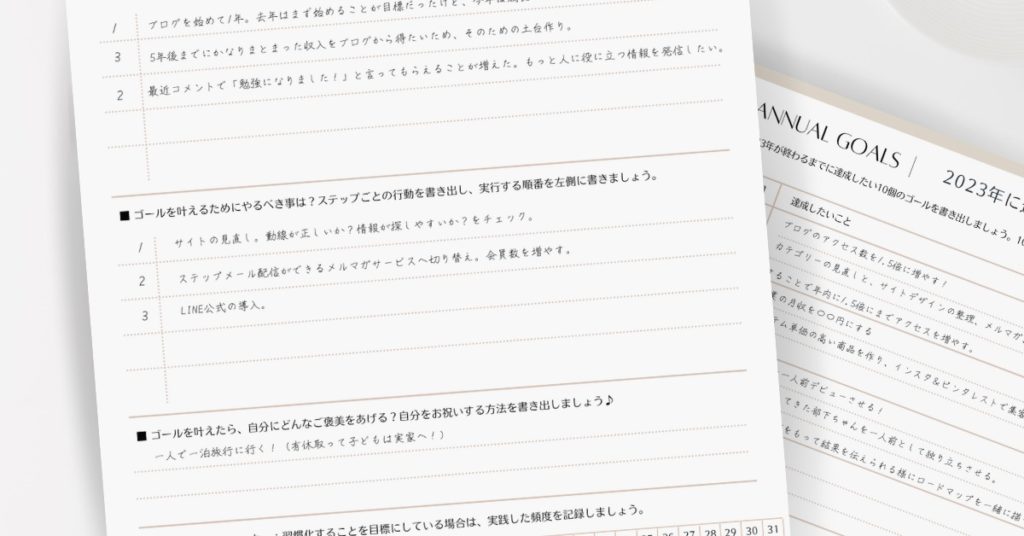 1 ブログを始めて1年。去年はまず始めることが目標だったけど、今年は
3 5年後までにかなりまとまった収入をブログから得たいため、そのための土台作り。
2 最近コメントで「勉強になりました!」と言ってもらえることが増えた。もっと人に役に立つ情報を発信したい。
■ ゴールを叶えるためにやるべき事は?ステップごとの行動を書き出し、実行する順番を左側に書きましょう。
1 サイトの見直し。動線が正しいか?情報が探しやすいか?をチェック。
2 ステップメール配信ができるメルマガサービスへ切り替え。会員数を増やす。
3 LINE公式の導入。
■ ゴールを叶えたら、自分にどんなご褒美をあげる?自分をお祝いする方法を書き出しましょう♪
一人で一泊旅行に行く!(有休取って子どもは実家へ!)
習慣化することを目標にしている場合は、実践した頻度を記録しましょう。
26 27 28 29 30 31
ANNUAL GOALS | 2023年に
3年が終わるまでに達成したい10個のゴールを書き出しましょう。
達成したいこと
ブログのアクセス数を1.5倍に増やす!
カテゴリーの見直しと、サイトデザインの整理、メルマガ
ることで年内に1.5倍にまでアクセスを増やす。
の月収を〇〇円にする
テム単価の高い商品を作り、インスタ&ピンタレストで集客
一人前デビューさせる!
てきた部下ちゃんを一人前として独り立ちさせる。
をもって結果を伝えられる様にロードマップを一緒に描